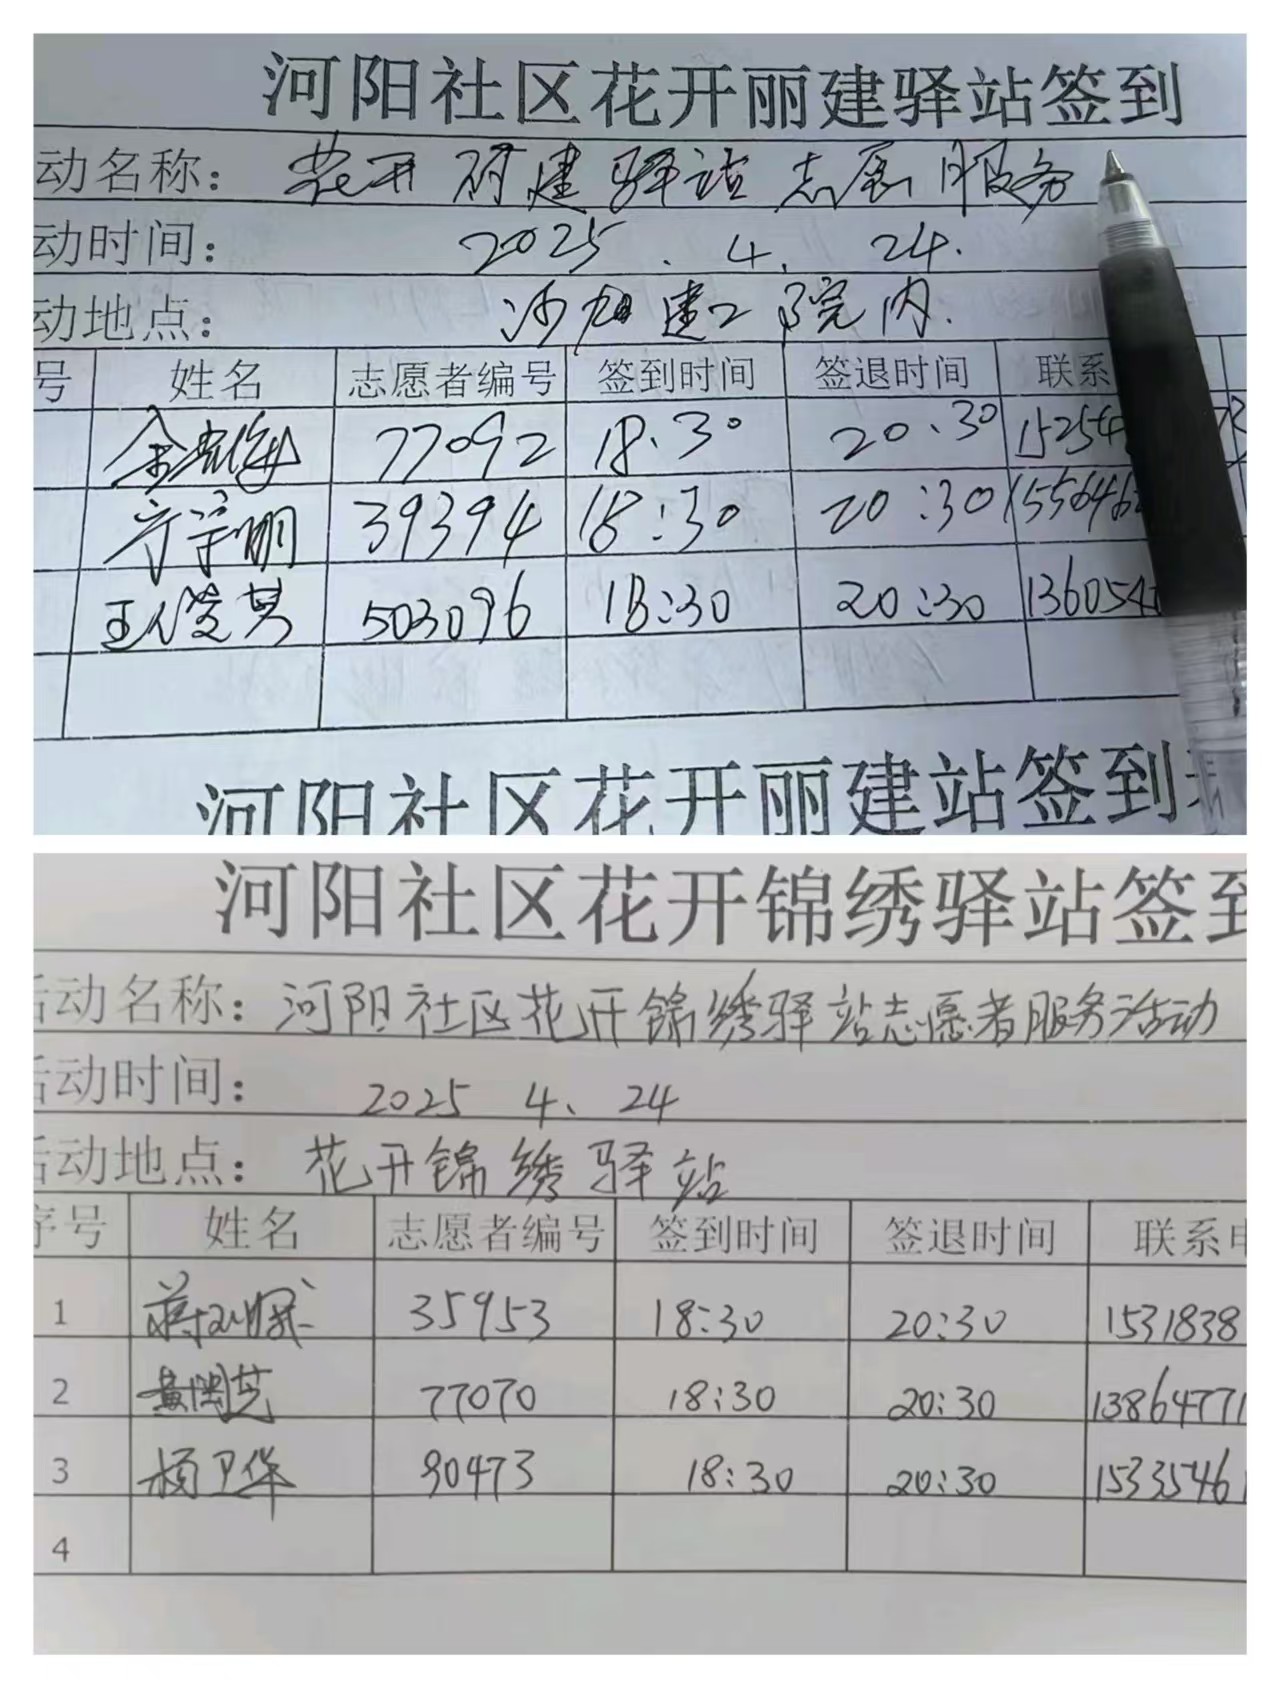 河阳社区花开丽建驿站签到
动名称：花开丽建驿站志愿服务
动时间：2025.4.24.
动地点：建工院内.
号 姓名 志愿者编号 签到时间 签退时间 联系
77092 18:30 20:30 15254
宁宗明 39394 18:30 20:30 155646
王俊芳 503096 18:30 20:30 136054
河阳社区花开丽建站签到
河阳社区花开锦绣驿站签到
活动名称：河阳社区花开锦绣驿站志愿者服务活动
活动时间：2025 4、24
活动地点：花开锦绣驿站
序号 姓名 志愿者编号 签到时间 签退时间 联系电
1 35953 18:30 20:30 1531838
2 77070 18:30 20:30 13864771
3 杨卫华 90473 18:30 20:30 15335461
4